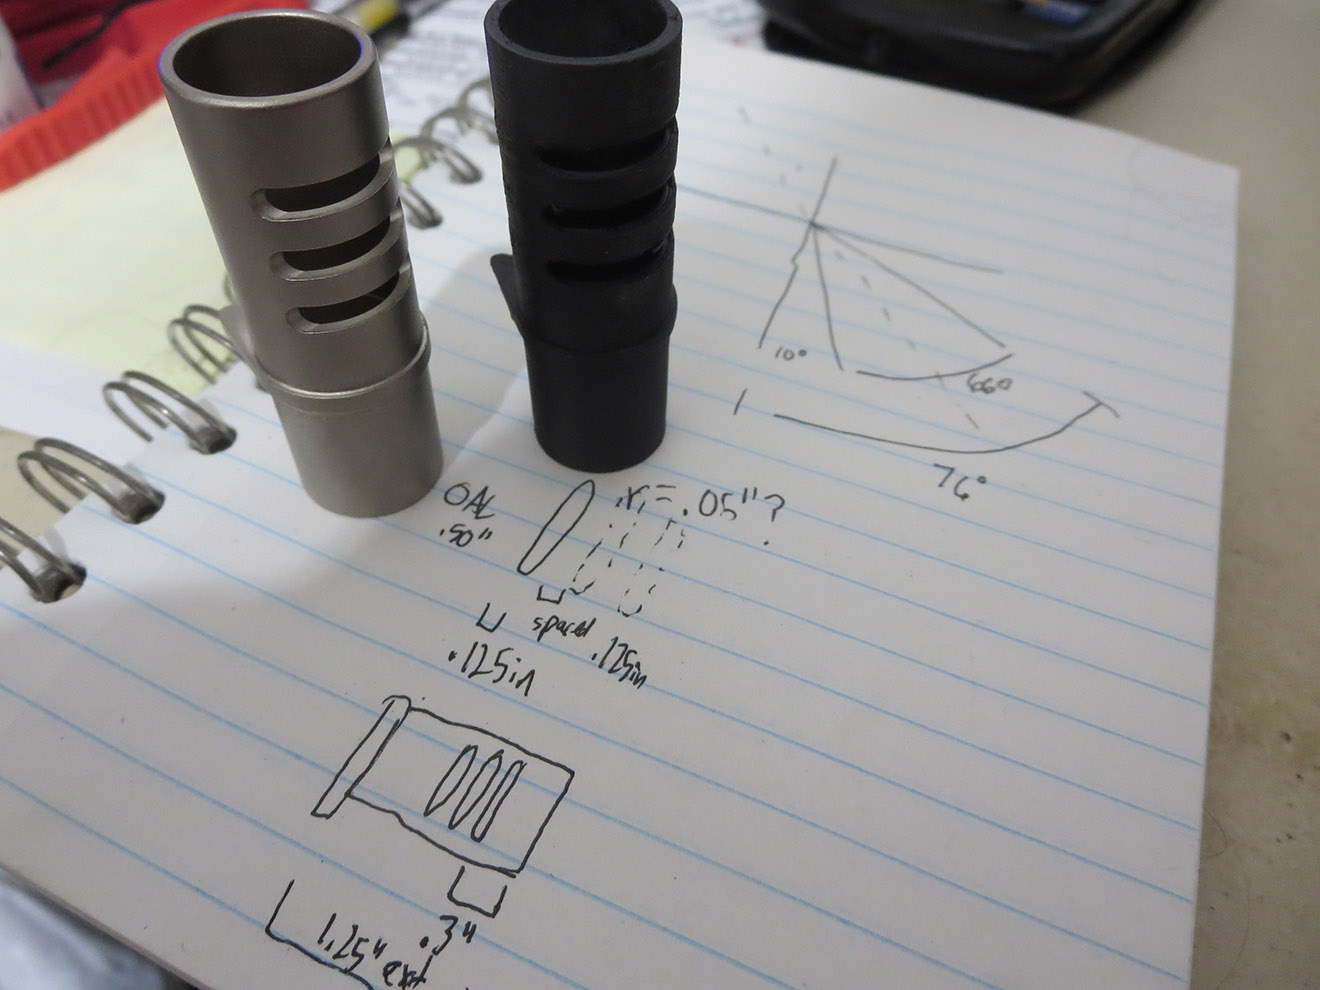 10°
66°
76°
OAL
.50"
r = .05"?
spaced .125in
.125in
.3"
1.25" ext